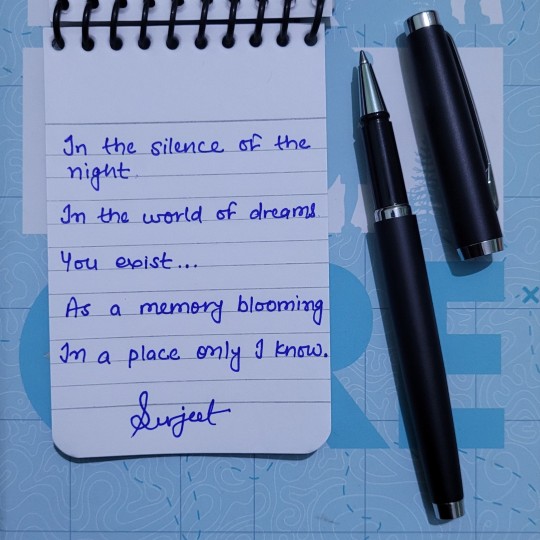 In the silence of the
night
In the world of dreams
You exist...
As a memory blooming
In a place only I know.
Surjeet
RE